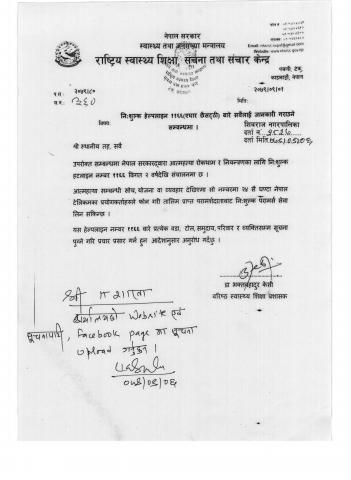 नेपाल सरकार
स्वास्थ्य तथा जनसंख्या मन्त्रालय
राष्ट्रिय स्वास्थ्य शिक्षा, सूचना तथा संचार केन्द्र
पचली, टेकु,
काठमाडौं, नेपाल
प.सं.
मिति:
विषय: नि:शुल्क हेल्पलाइन ११६६ बारे सबैलाई जानकारी गराउने
सम्बन्धमा ।
शिवराज नगरपालिका
दर्ता नं.
दर्ता मिति
श्री स्थानीय तह, सबै
उपरोक्त सम्बन्धमा नेपाल सरकारद्वारा आत्महत्या रोकथाम र नियन्त्रणका लागि नि:शुल्क
हटलाइन नम्बर ११६६ विगत २ वर्षदेखि संचालनमा छ ।
आत्महत्या सम्बन्धी सोच, योजना वा व्यवहार देखिएमा सो नम्बरमा २४ सै घण्टा नेपाल
टेलिकमका प्रयोगकर्ताहरुले फोन गरी तालिम प्राप्त परामर्शदाताबाट नि:शुल्क परामर्श सेवा
लिन सकिन्छ ।
यस हेल्पलाइन नम्बर ११६६ बारे प्रत्येक वडा, टोल, समुदाय, परिवार र व्यक्तिसम्म सूचना
पुग्ने गरि प्रचार प्रसार गर्न हुन आदेशानुसार अनुरोध गर्दछु ।
डा भक्तबहादुर केसी
वरिष्ठ स्वास्थ्य शिक्षा प्रशासक
श्री शाखा
Website एवं
Facebook page मा सूचना
upload गर्नुहुन ।